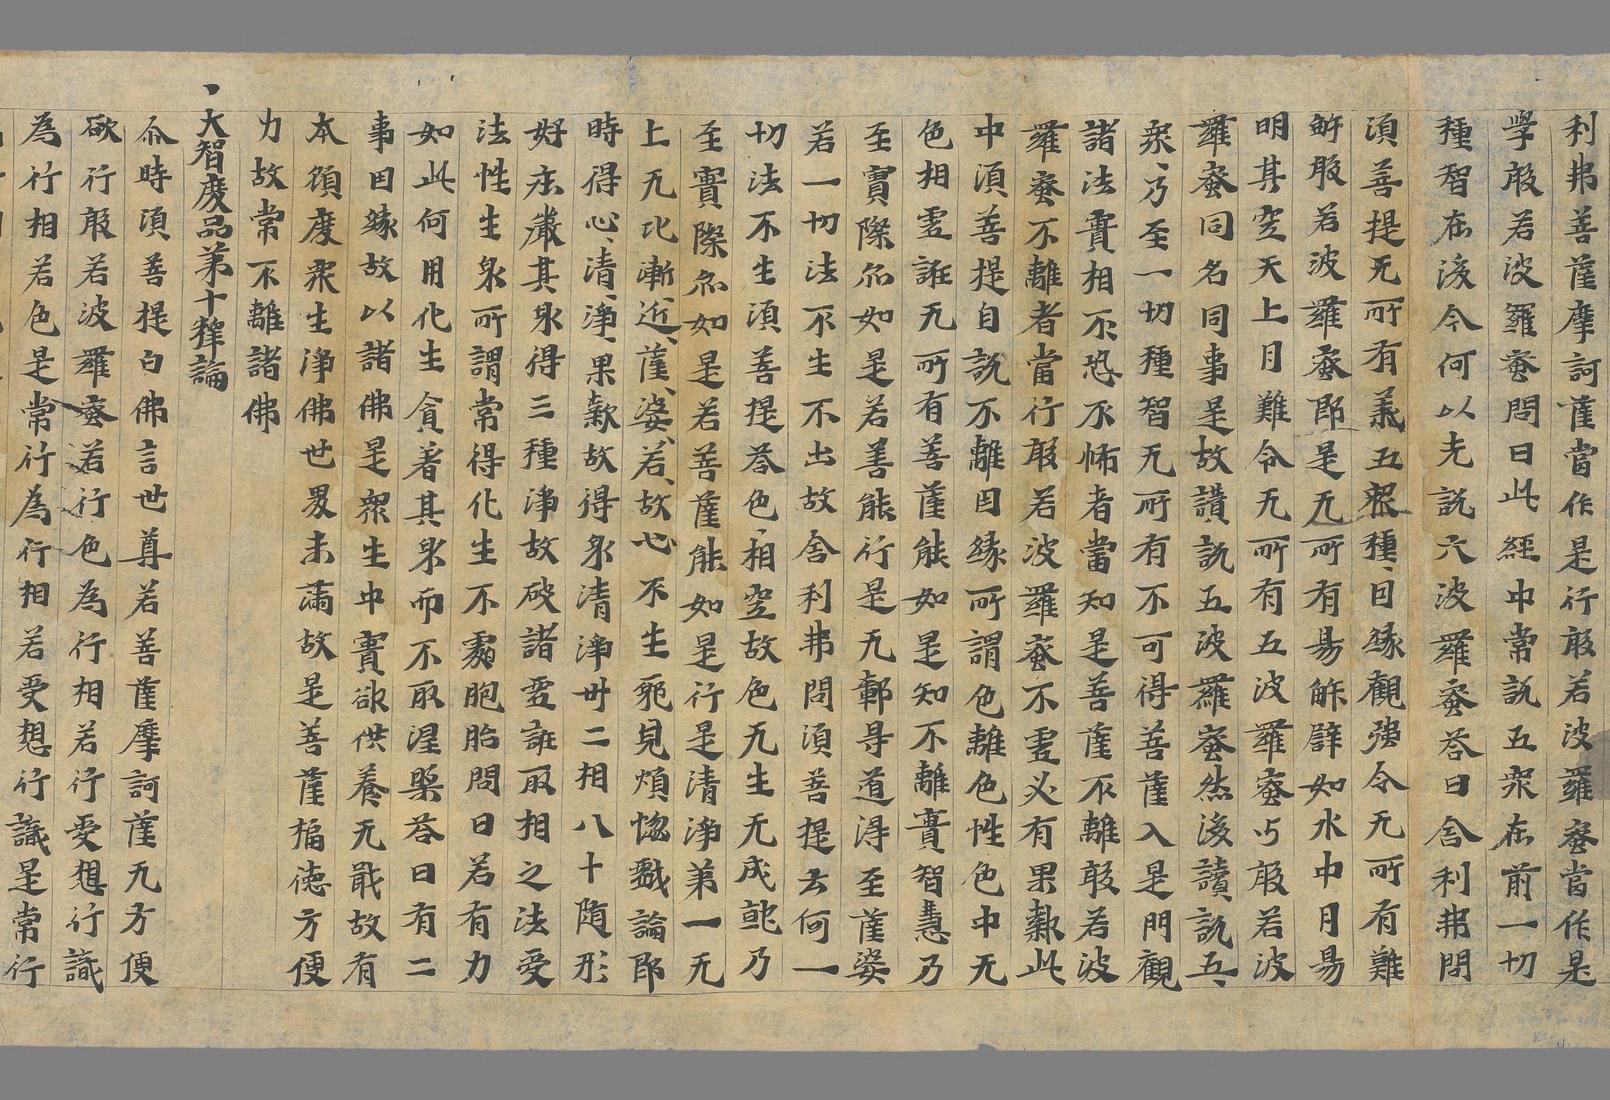 利弗菩薩摩訶薩當作是行般若波羅蜜當作是
學般若波羅蜜問曰此經中常說五衆在前一切
種智在後今何以先說六波羅蜜荅曰舍利弗問
須菩提无所有義五衆種種因緣觀強令无所有難
解般若波羅蜜即是无所有易解譬如水中月易
明其空天上月難令无所有五波羅蜜与般若波
羅蜜同名同事是故讚說五波羅蜜然後讀說五
衆衆乃至一切種智无所有不可得菩薩入是門觀
諸法實相不恐不怖者當知是菩薩不離般若波
羅蜜不離者當行般若波羅蜜不虛必有果報此
中須菩提自說不離因緣所謂色離色性色中无
色相虛誑无所有菩薩能如是知不離實智慧乃
至實際亦如是若善能行是无鄣㝵道得至薩婆
若一切法不生不出故舍利弗問須菩提云何一
切法不生須菩提荅色色相空故色无生无成就乃
至實際亦如是若菩薩能如是行是清淨第一无
上无比漸漸近近薩薩婆婆若若故心不生邪見煩惱戲論即
時得心心清清淨淨果報故得身清淨卅二相八十随形
好庄嚴其身得三種淨故破諸虛誑取相之法受
法性生身所謂常得化生不處胞胎問曰若有力
如此何用化生貪著其身而不取涅槃荅曰有二
事因緣故以諸佛是衆生中寶欲供養无猒故有
本願度衆生淨佛世界未滿故是菩薩福德方便
力故常不離諸佛
大智度品第十釋論
尒時須菩提白佛言世尊若菩薩摩訶薩无方便
欲行般若波羅蜜若行色為行相若行受想行識
為行相若色是常行為行相若受想行識是常行